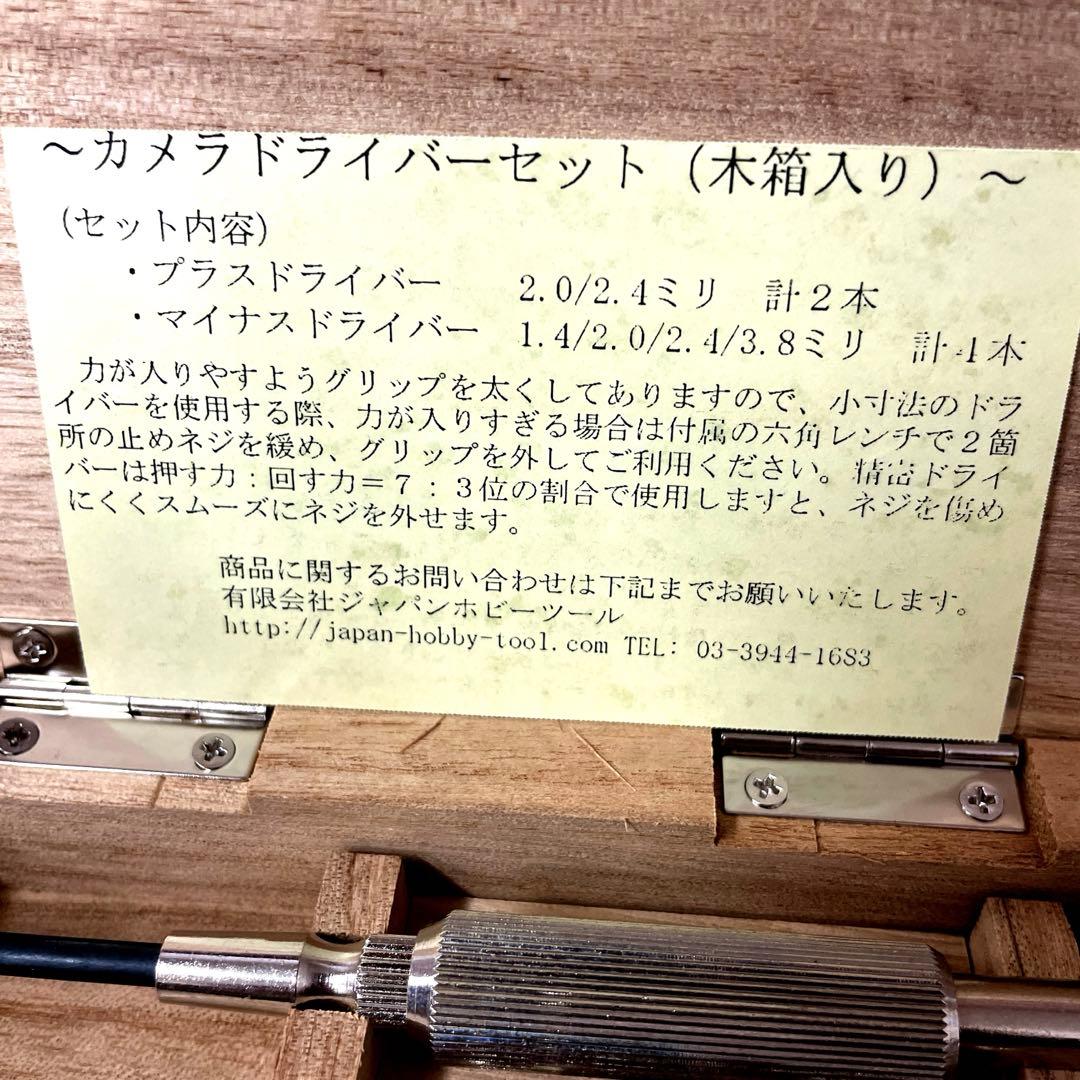 ～カメラドライバーセット（木箱入り）～
(セット内容)
・プラスドライバー 2.0/2.4ミリ 計２本
・マイナスドライバー 1.4/2.0/2.4/3.8ミリ 計４本
力が入りやすようグリップを太くしてありますので、小寸法のドラ
イバーを使用する際、力が入りすぎる場合は付属の六角レンチで２箇
所の止めネジを緩め、グリップを外してご利用ください。精密ドライ
バーは押す力：回す力＝７：３位の割合で使用しますと、ネジを傷め
にくくスムーズにネジを外せます。
商品に関するお問い合わせは下記までお願いいたします。
有限会社ジャパンホビーツール
http://japan-hobby-tool.com TEL: 03-3944-1683